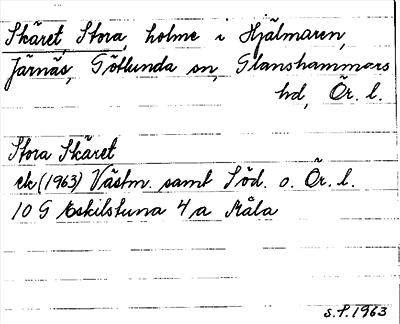 Skäret, Stora, holme i Hjälmaren,
Järnäs, Götlunda sn, Glanshammars
hd, Ör. l.
Stora Skäret
ek (1963) Västm. samt Söd. o. Ör. l.
10 G Eskilstuna 4 a Råla
S.F. 1963